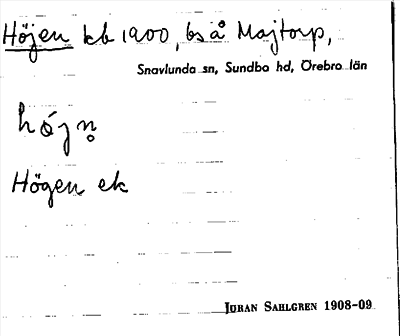 Höjen kb 1900, bs å Majtorp,
Snavlunda sn, Sundbo hd, Örebro län
högn̥
Högen ek
JÖRAN SAHLGREN 1908-09